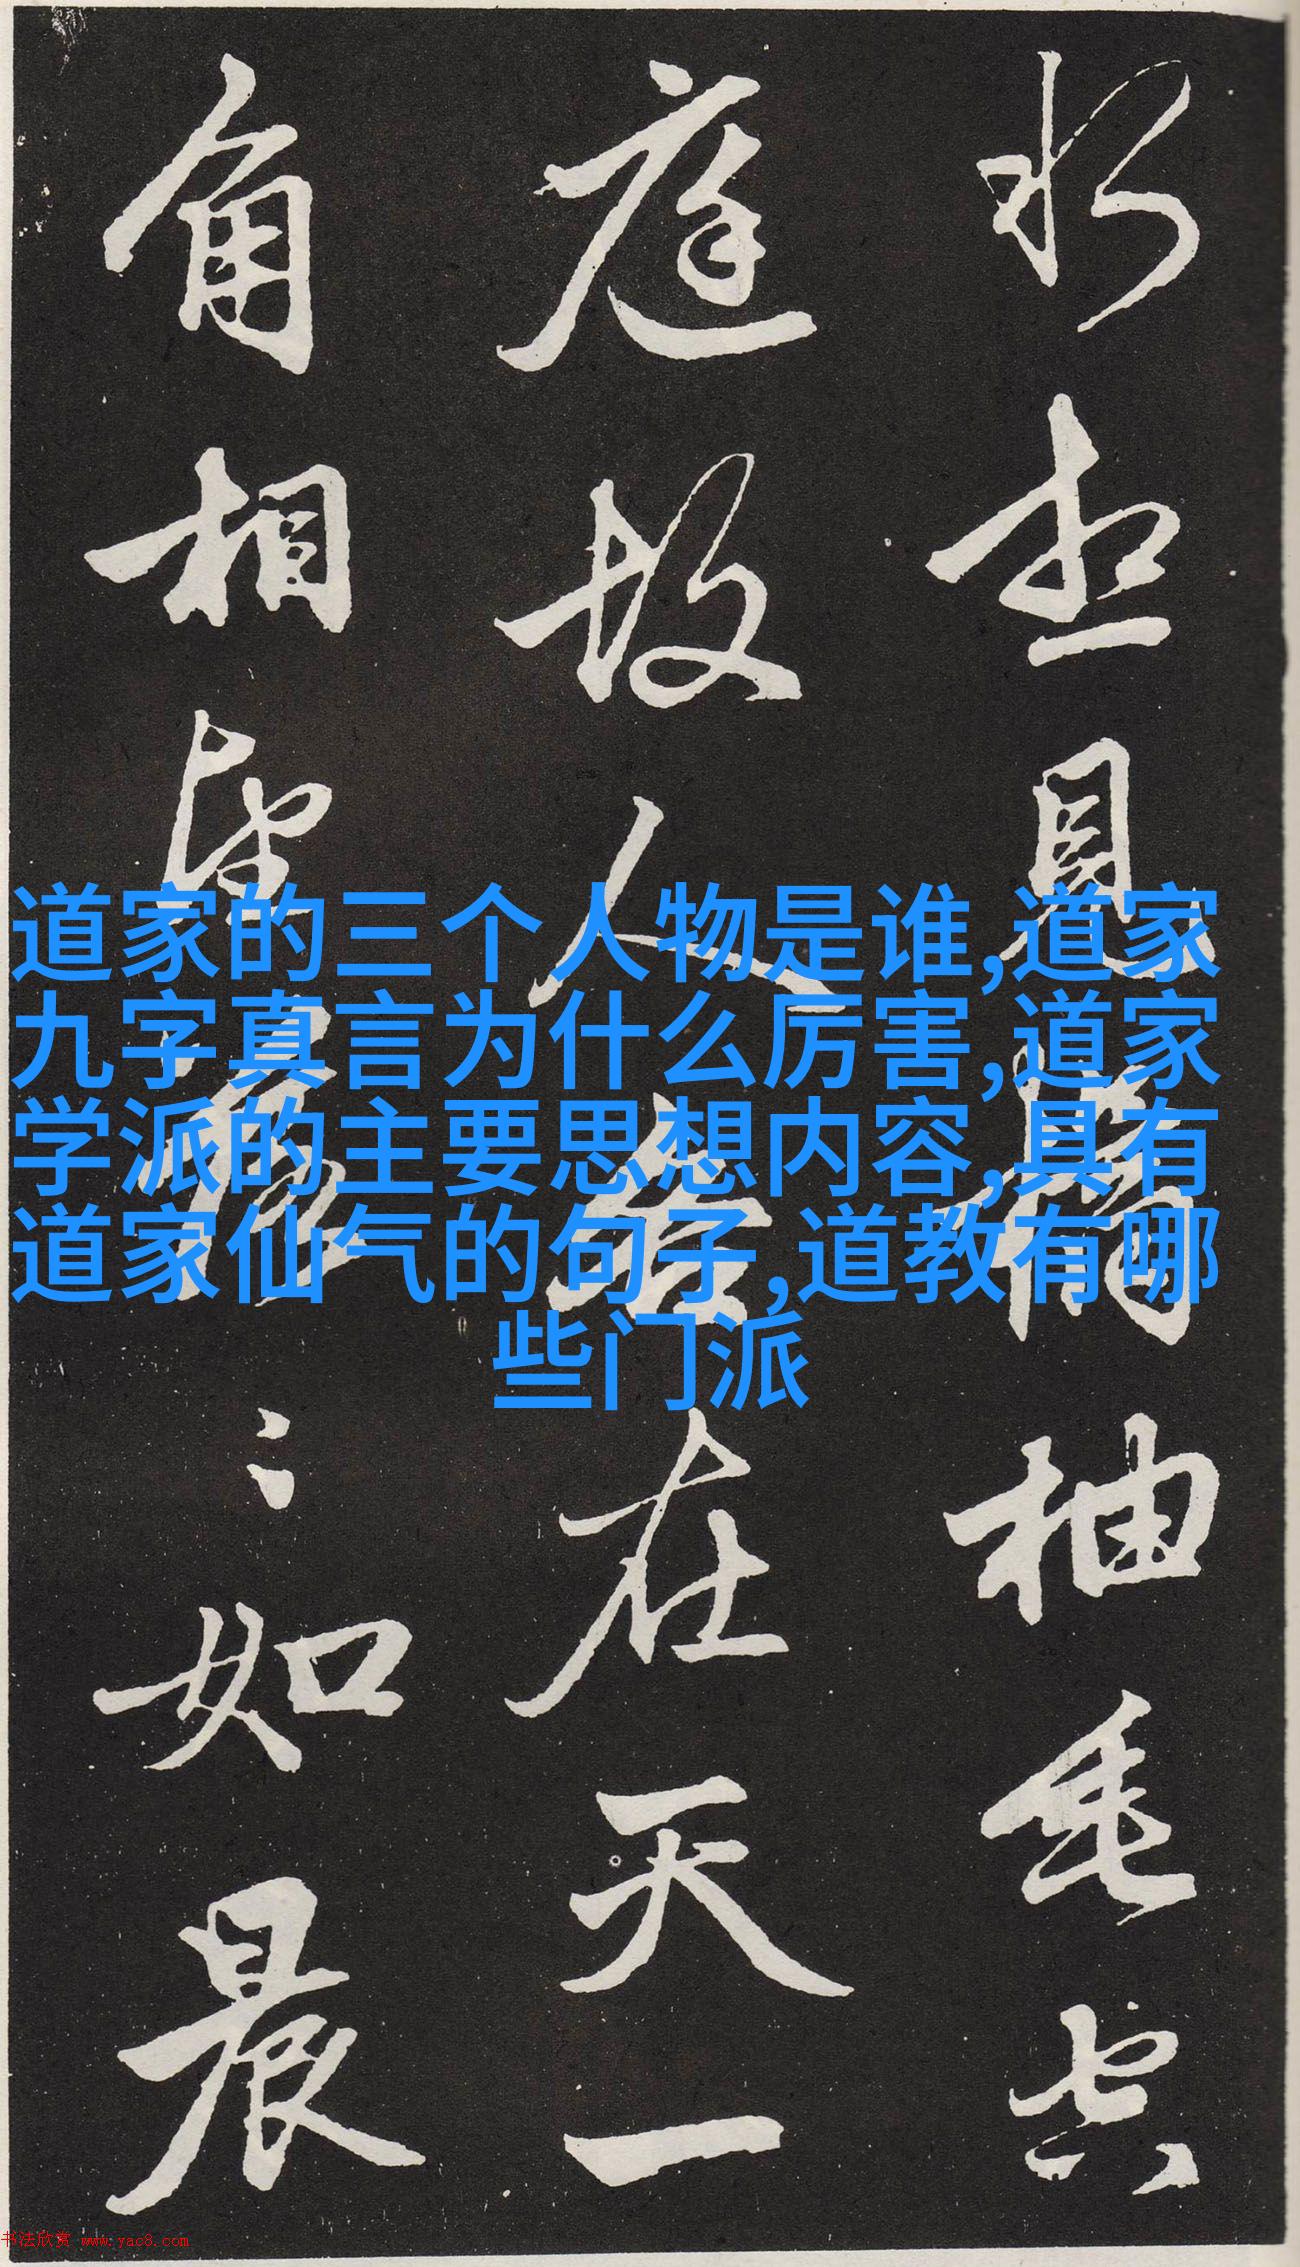 想見橘柚垂空
庭故人各在天一
角相望落〻如晨
道家的三个人物是谁,道家
九字真言为什么厉害,道家
学派的主要思想内容,具有
道家仙气的句子,道教有哪
些门派
书法欣赏 www.yac8.com